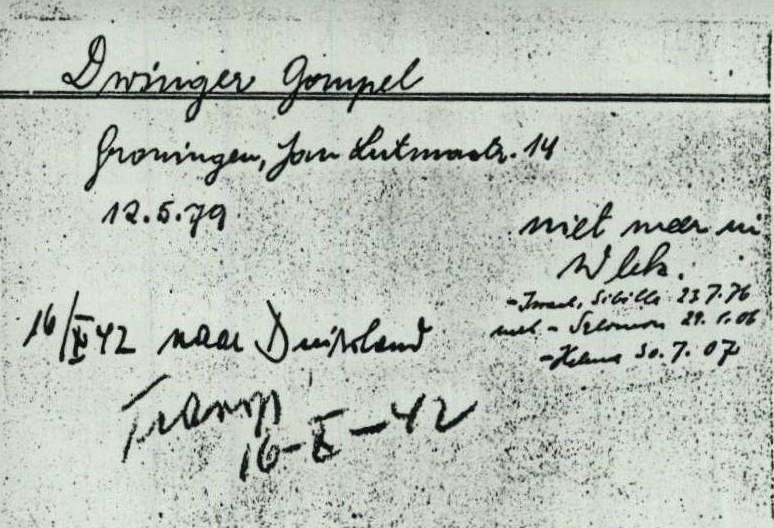 Dwinger Gompel
Groningen, Jan Lutmastr. 14
12.5.79
niet meer in
Wbk.
- Israel, Sibilla 23.7.76
met - Salomon 29.1.06
- Helena 30.7.07
16/X 42 naar Duitsland
Transp
16-X-42